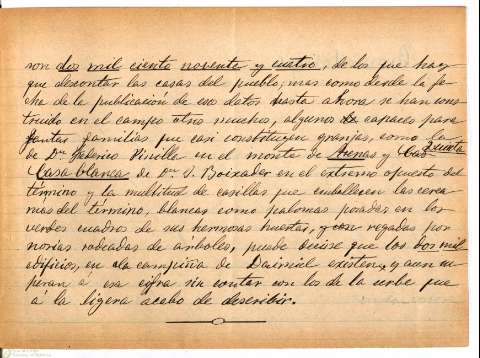 son dos mil ciento noventa y cuatro, de los que hay
que descontar las casas del pueblo; mas como desde la fe-
cha de la publicación de eso datos hasta ahora se han cons
truido en el campo otros muchos, algunos de capaces para
familias que casi constituyen granjas, como la Quinta
de Dn. Federico Pinilla en el monte de Arenas y
Casa blanca de Dn. J. Boixader en el extremo opuesto del
término y la multitud de casillas que embellecen las cerca
nias del término, blancas como palomas posadas en los
verdes cuadros de sus hermosas huertas, y con regadas por
norias rodeadas de arboles, puede decirse que los dos mil
edificios, en la campiña de Daimiel existen, y aun su
peran a esa cifra sin contar con los de la urbe que
á la ligera acabo de describir.